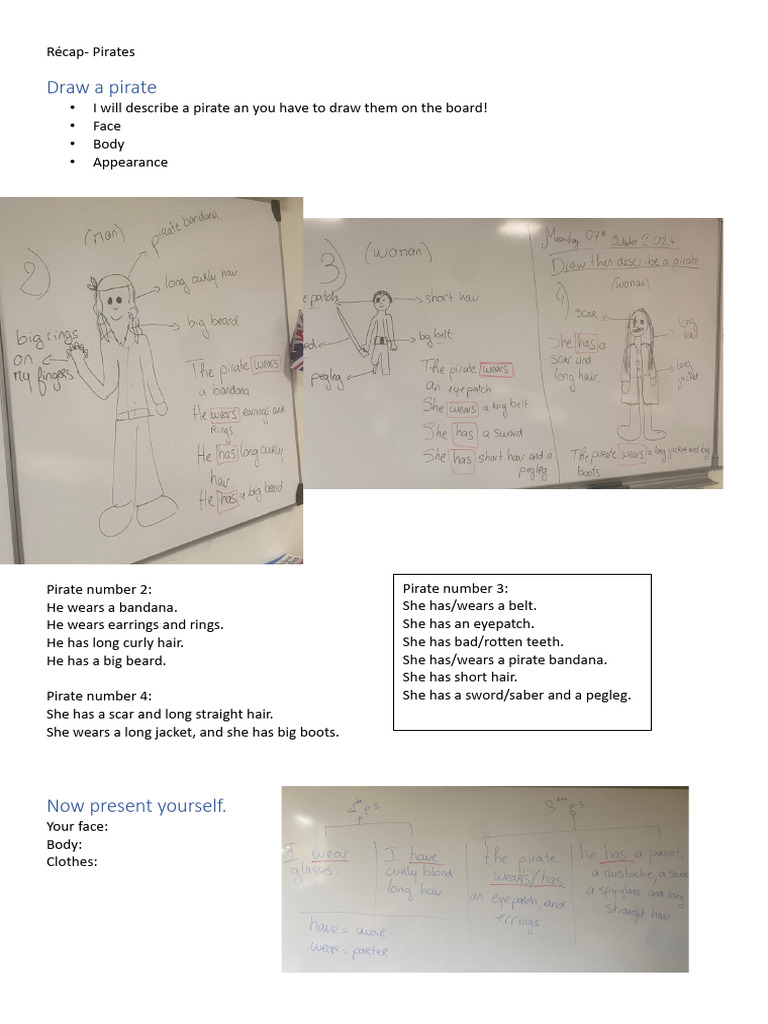 Récap- Pirates
Draw a pirate
• I will describe a pirate an you have to draw them on the board!
• Face
• Body
• Appearance
2)
(man)
pirate bandana
long curly hair
big beard
big rings
on
my fingers
The pirate wears
a bandana
He wears earrings and
Rings.
He has long curly
hair
He has a big beard
3)
(woman)
patch
short hair
big belt
pegleg
The pirate wears
an eyepatch.
She wears a big belt
She has a sword
She has short hair and a
pegleg
Monday 07th October 2024
Draw then describe a pirate
4)
(woman)
scar
long
hair
long
jacket
She has a
scar and
long hair
The pirate wears a long jacket and big
boots.
Pirate number 2:
He wears a bandana.
He wears earrings and rings.
He has long curly hair.
He has a big beard.
Pirate number 4:
She has a scar and long straight hair.
She wears a long jacket, and she has big boots.
Pirate number 3:
She has/wears a belt.
She has an eyepatch.
She has bad/rotten teeth.
She has/wears a pirate bandana.
She has short hair.
She has a sword/saber and a pegleg.
Now present yourself.
Your face:
Body:
Clothes:
I wear
glasses.
I have
curly blond
long hair
have = avoir
wear = porter
the pirate
wears/has
an eyepatch, and
errings
he has a parrot,
a mustache, a sword
a spyglass and long
straight hair